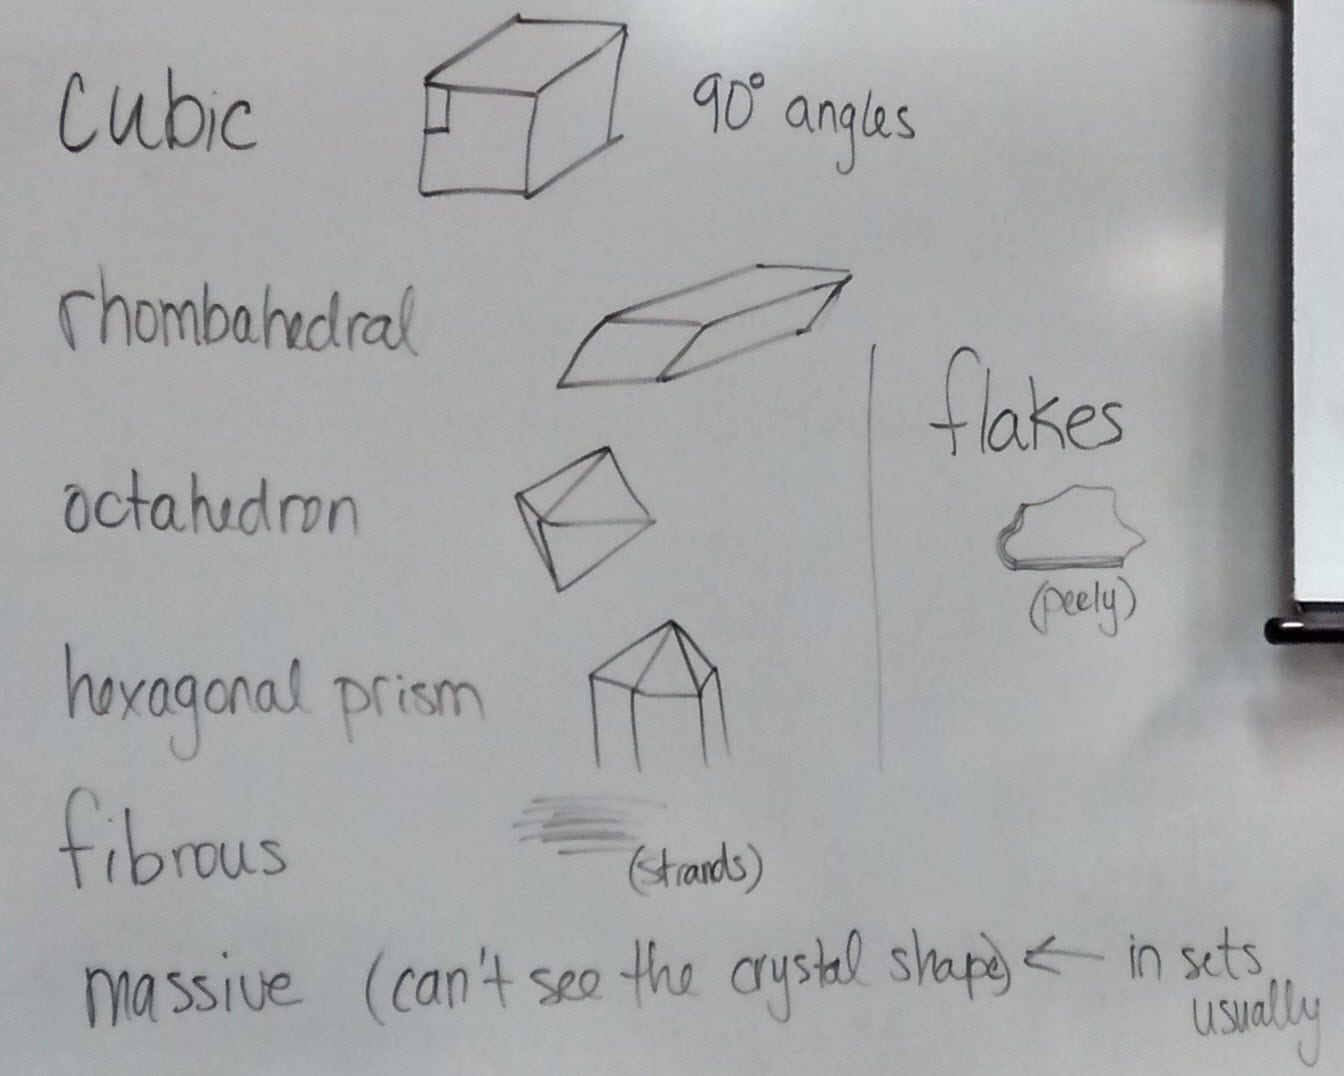 cubic 90° angles
rhombahedral
flakes
octahedron
(peely)
hexagonal prism
fibrous (strands)
massive (can't see the crystal shape) ← in sets
usually